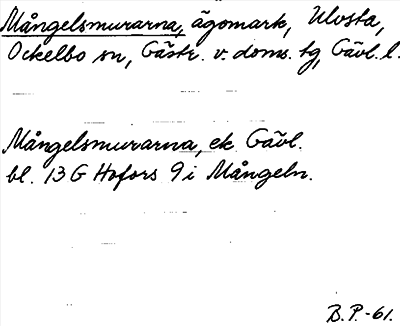 Mångelsmurarna, ägomark, Ulvsta,
Ockelbo sn, Gästr. v. doms. tg, Gävl. l.
Mångelsmurarna, ek. Gävl.
bl. 13 G Hofors 9 i Mångeln.
B.P.-61.